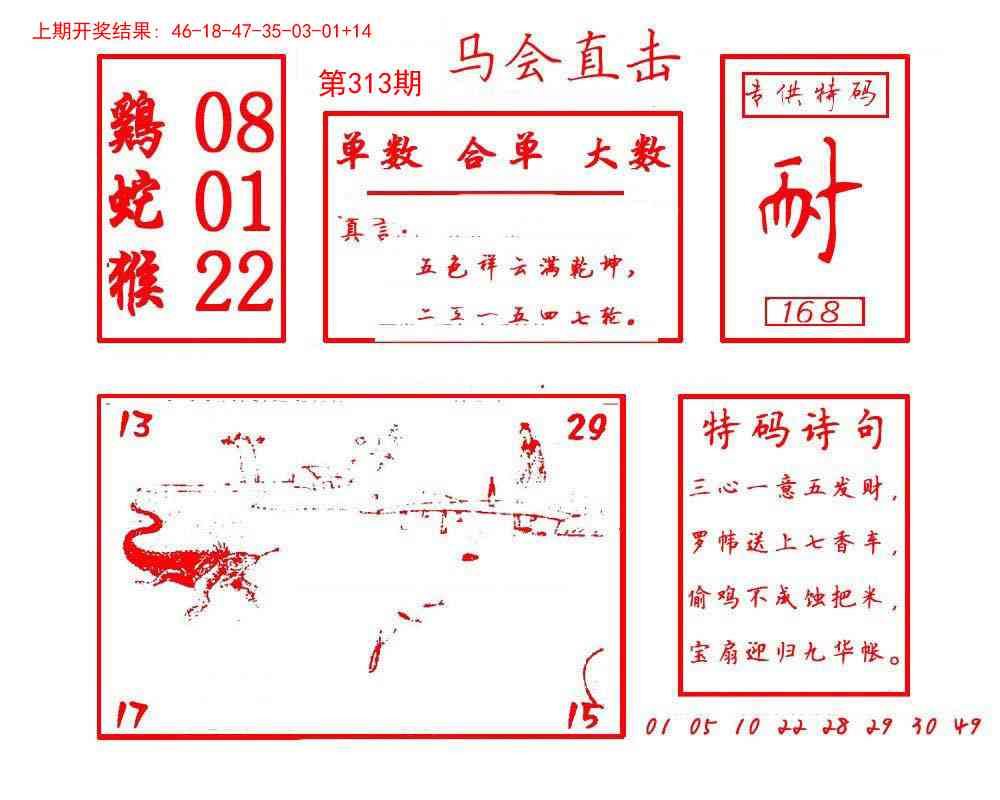 上期开奖结果: 46-18-47-35-03-01+14
马会直击
第313期
鷄 08
蛇 01
猴 22
单数 合单 大数
真言.
五色祥云满乾坤,
二三一五四七轮。
专供特码
耐
168
13
29
17
15
特码诗句
三心一意五发财,
罗帏送上七香车,
偷鸡不成蚀把米,
宝扇迎归九华帐。
01 05 10 22 28 29 30 49